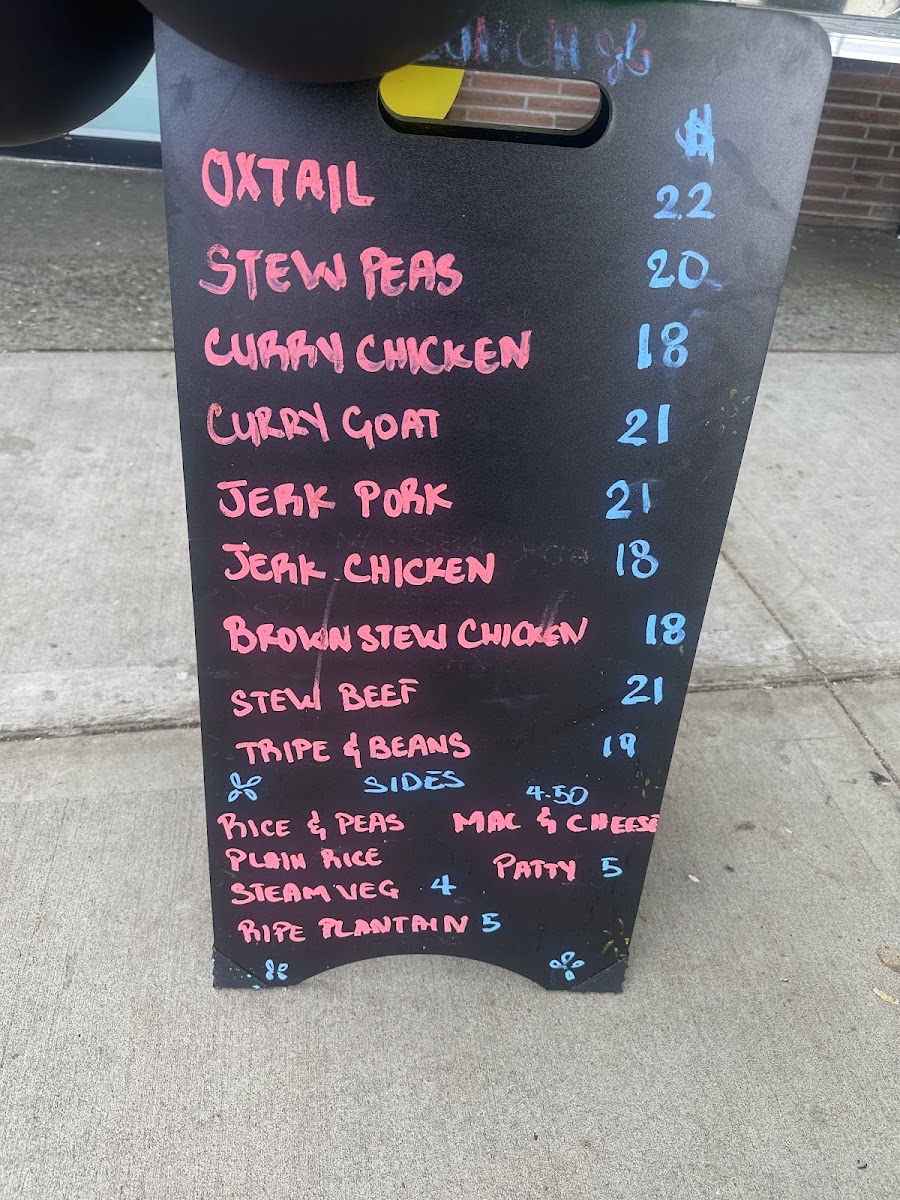 LUNCH
$
OXTAIL 22
STEW PEAS 20
CURRY CHICKEN 18
CURRY GOAT 21
JERK PORK 21
JERK CHICKEN 18
BROWN STEW CHICKEN 18
STEW BEEF 21
TRIPE & BEANS 19
SIDES
4.50
RICE & PEAS MAC & CHEESE
PLAIN RICE
PATTY 5
STEAM VEG 4
RIPE PLANTAIN 5